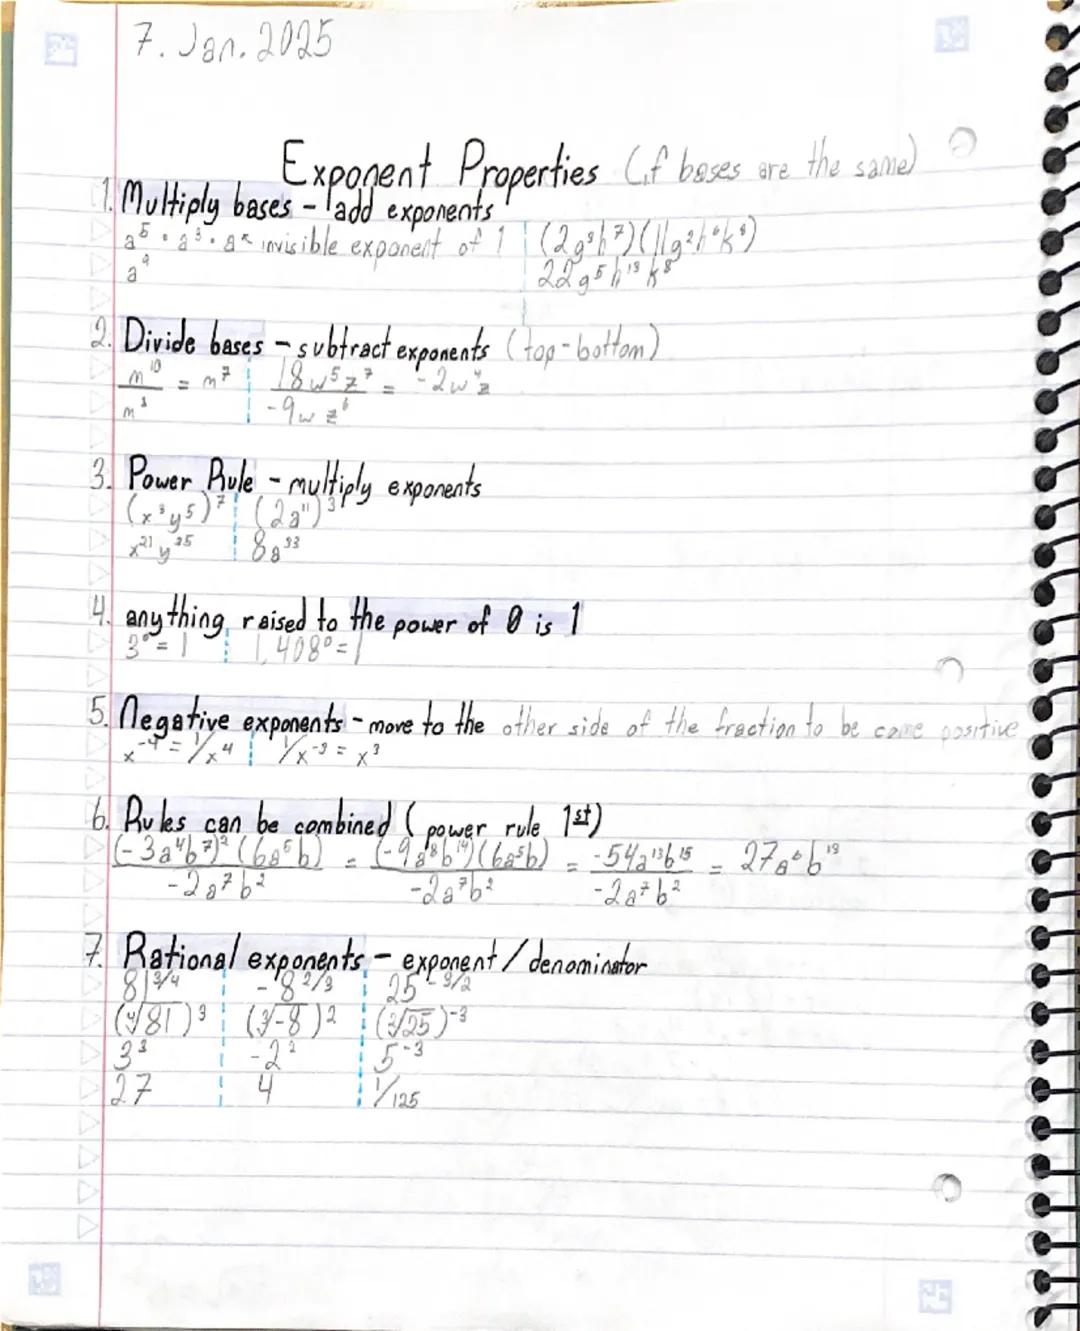 7. Jan. 2025
Exponent Properties (if bases are the same)
1. Multiply bases - add exponents
a⁵ · a³ · a ↖ invisible exponent of 1 | (2g³h⁷)(11g²h⁶k⁸)
a⁹ | 22g⁵h¹³k⁸
2. Divide bases - subtract exponents (top - bottom)
m¹⁰/m³ = m⁷ | 18w⁵z⁷/-9wz⁶ = -2w⁴z
3. Power Rule - multiply exponents
(x³y⁵)⁷ | (2a¹¹)³
x²¹y³⁵ | 8a³³
4. anything raised to the power of 0 is 1
3⁰ = 1 | 1,408⁰ = 1
5. Negative exponents - move to the other side of the fraction to be come positive
x⁻⁴ = 1/x⁴ | 1/x⁻³ = x³
6. Rules can be combined (power rule 1st)
(-3a⁴b⁷)²(6a⁵b)/-2a⁷b² = (-9a⁸b¹⁴)(6a⁵b)/-2a⁷b² = -54a¹³b¹⁵/-2a⁷b² = 27a⁶b¹³
7. Rational exponents - exponent / denominator
81³/⁴ | -8²/³ | 25⁻³/²
(⁴√81)³ | (³√-8)² | (²√25)⁻³
3³ | -2² | 5⁻³
27 | 4 | 1/125